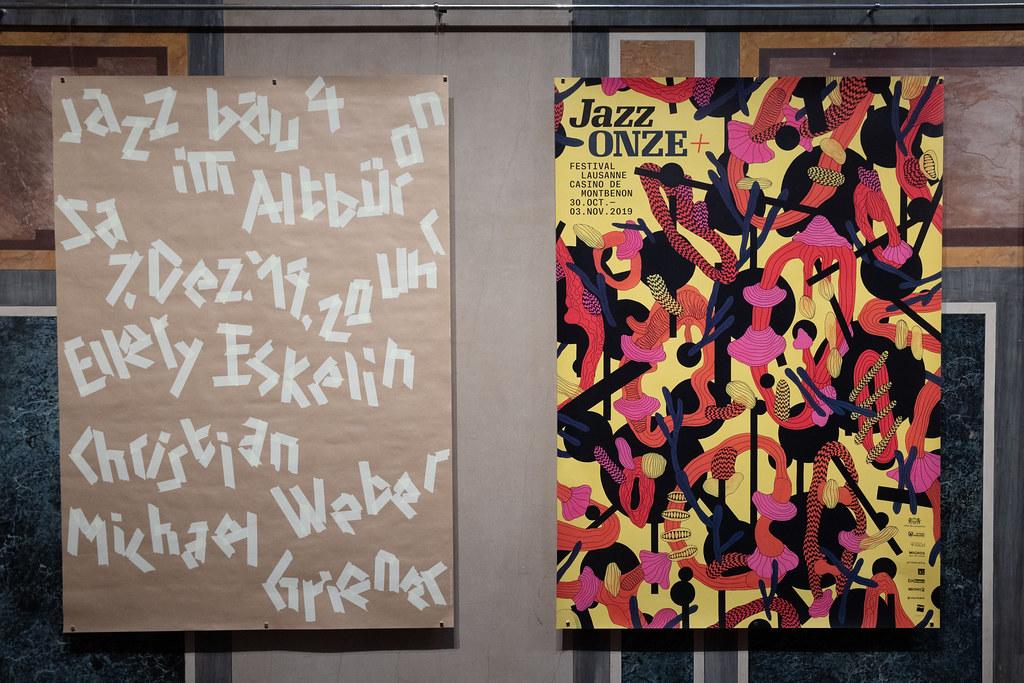 Jazz bäu 4
im Altbüron
Sa
7. Dez. '19. 20 Uhr
Ellery Eskelin
Christian
Weber
Michael
Griener
Jazz
ONZE+
FESTIVAL
LAUSANNE
CASINO DE
MONTBENON
30.OCT.–
03.NOV.2019